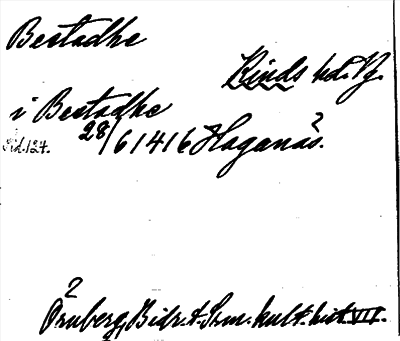 Bestadhe
Kinds hd. Vg.
i Bestadhe
Sid. 124. 28/6 1416 Haganäs. ?
2
Öruberg, Bidr. t. Srm. kult. hist. VII.